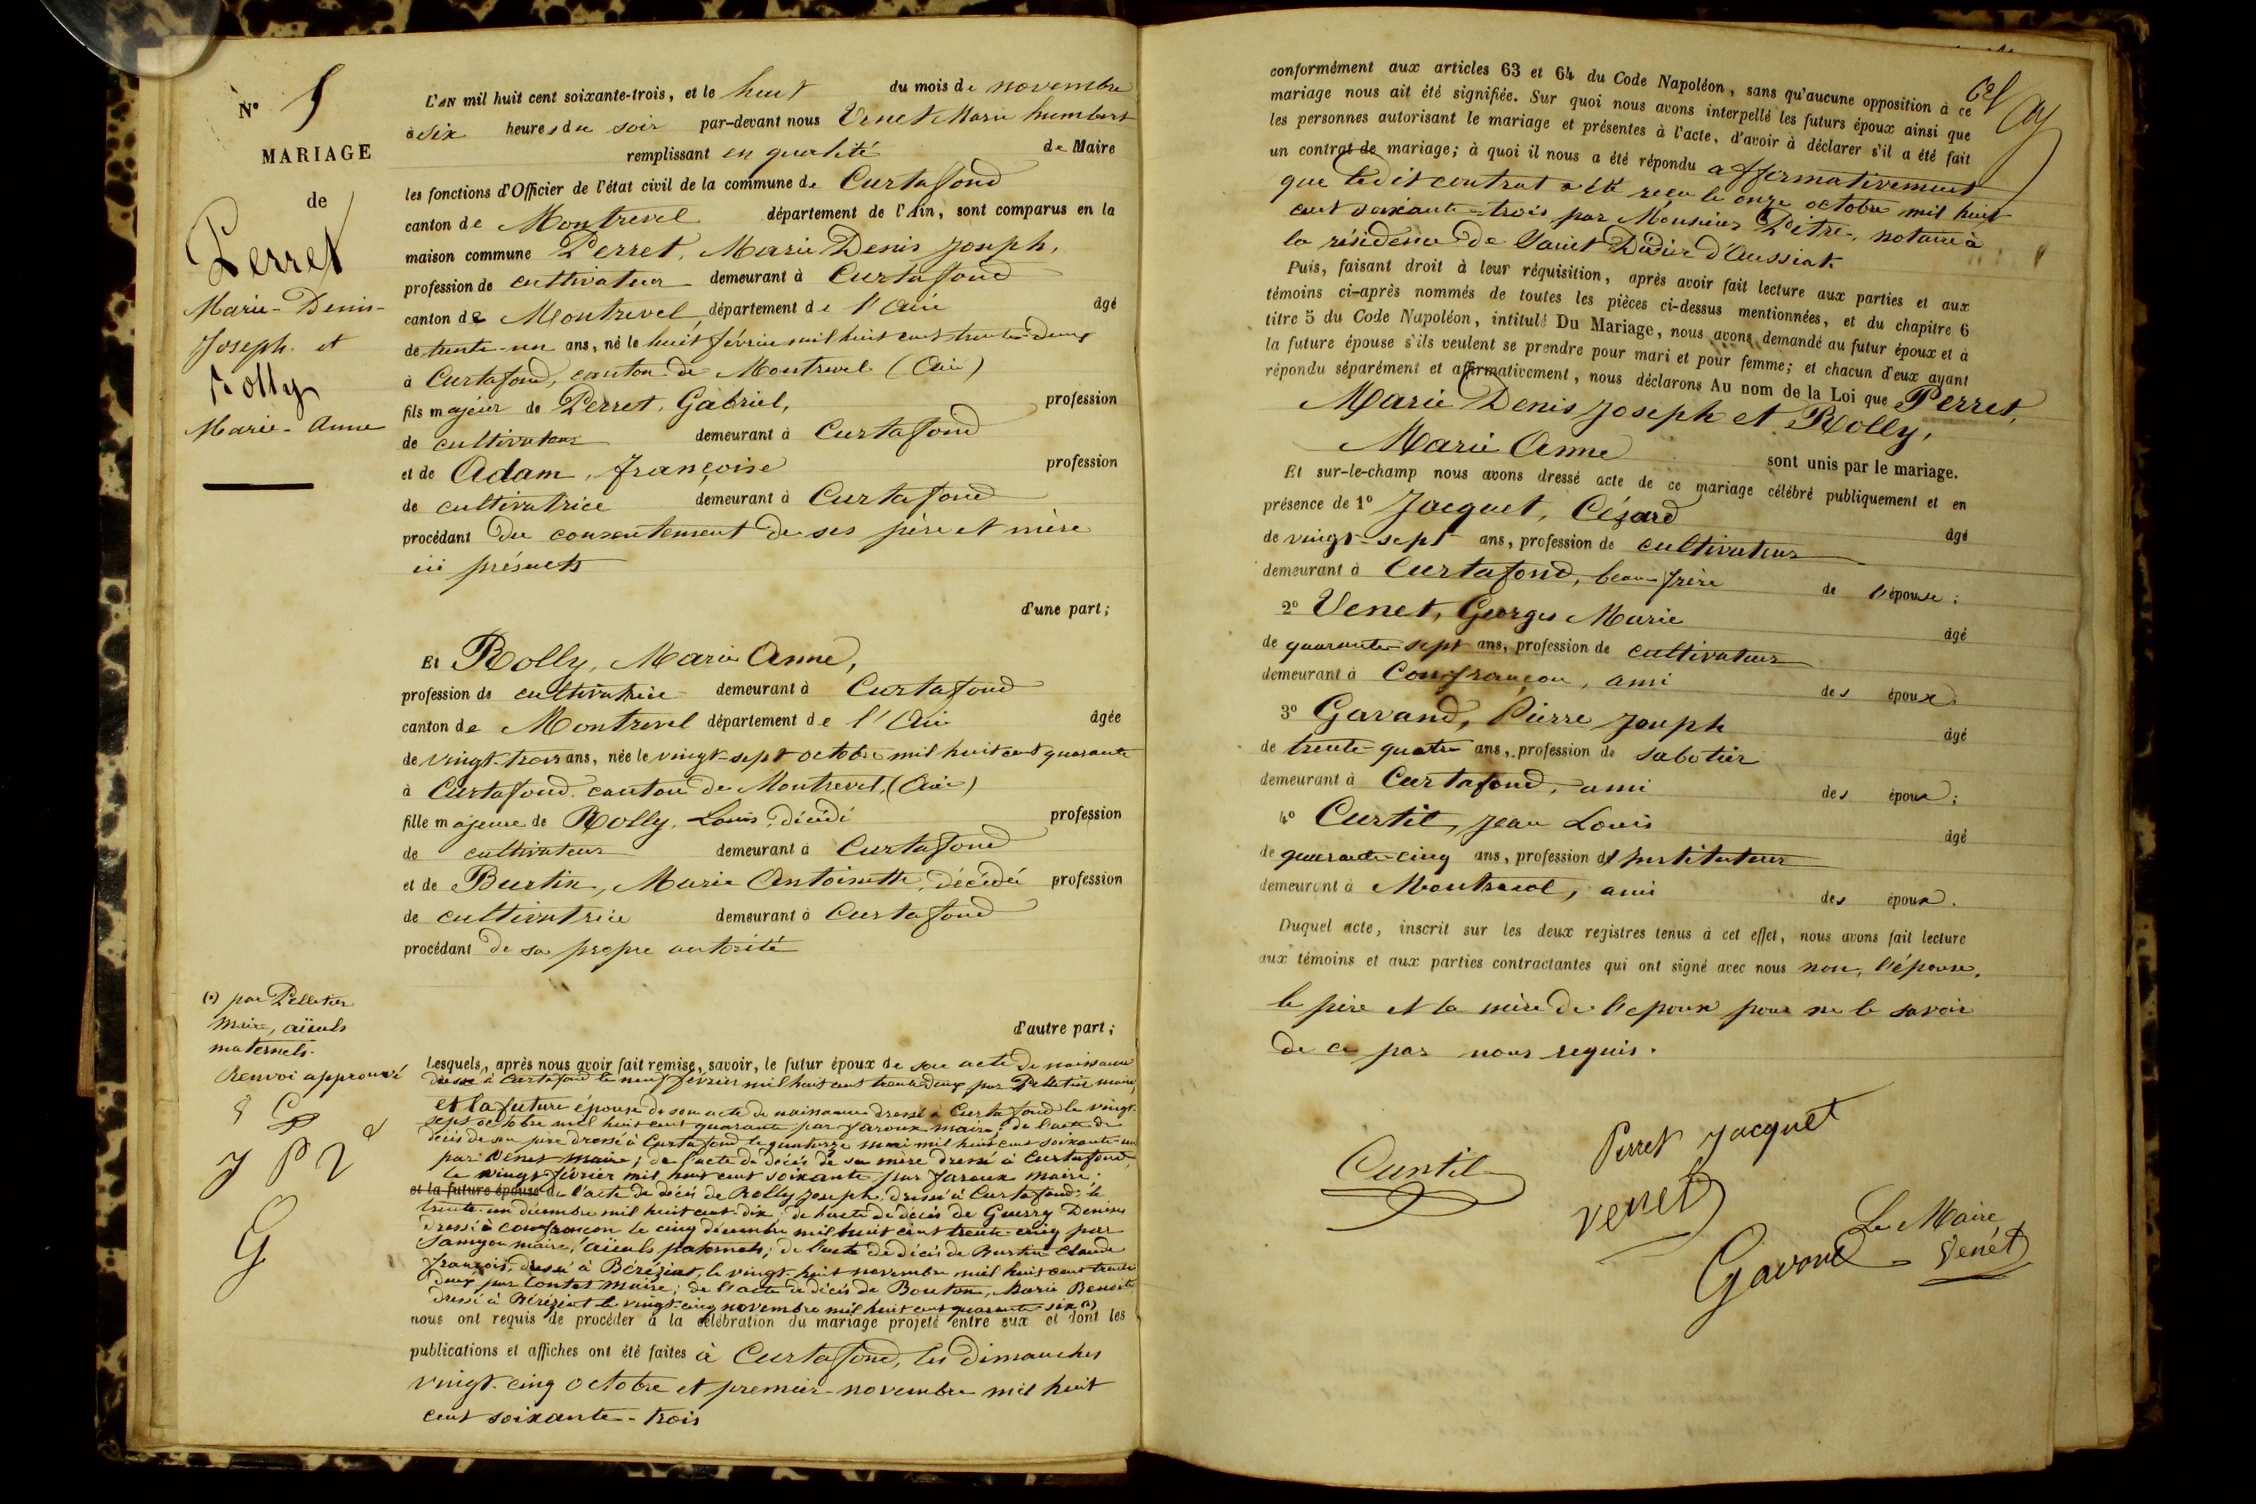 N° 5
MARIAGE
de
Perret
Marie-Denis-
Joseph. et
Rolly
Marie-Anne
L'AN mil huit cent soixante-trois, et le huit du mois de novembre
à six heures du soir par-devant nous Venet Marie humbert
remplissant en qualité de Maire
les fonctions d'Officier de l'état civil de la commune de Curtafond
canton de Montrevel département de l'Ain, sont comparus en la
maison commune Perret, Marie Denis Joseph,
profession de cultivateur demeurant à Curtafond
canton de Montrevel, département de l'Ain âgé
de trente-un ans, né le huit février mil huit cent trente-deux
à Curtafond, canton de Montrevel (Ain)
fils majeur de Perret, Gabriel, profession
de cultivateur demeurant à Curtafond
et de Adam, Françoise profession
de cultivatrice demeurant à Curtafond
procédant du consentement de ses père et mère
ici présents
d'une part;
Et Rolly, Marie Anne,
profession de cultivatrice demeurant à Curtafond
canton de Montrevel département de l'Ain âgée
de vingt-trois ans, née le vingt-sept octobre mil huit cent quarante
à Curtafond canton de Montrevel, (Ain)
fille majeure de Rolly, Louis, décédé profession
de cultivateur demeurant à Curtafond
et de Burtin, Marie Antoinette, décédée profession
de cultivatrice demeurant à Curtafond
procédant de sa propre autorité
d'autre part;
(1) par Pelletier
maire, aïeuls
maternels.
Renvoi approuvé
J P V
G
Lesquels, après nous avoir fait remise, savoir, le futur époux de son acte de naissance
dressé à Curtafond le neuf février mil huit cent trente-deux par Pelletier maire,
et la future épouse de son acte de naissance dressé à Curtafond le vingt-
sept octobre mil huit cent quarante par Faroux maire; de l'acte de
décès de son père dressé à Curtafond le quatorze mai mil huit cent soixante-un
par Venet maire; de l'acte de décès de sa mère dressé à Curtafond,
le vingt février mil huit cent soixante par Faroux maire;
et la future épouse de l'acte de décès de Rolly Joseph, dressé à Curtafond, le
trente-un décembre mil huit cent dix; de l'acte de décès de Guerry Denise
dressé à Confrançon le cinq décembre mil huit cent trente-cinq par
Samyon maire, aïeuls paternels; de l'acte de décès de Burtin Claude
François, dressé à Béréziat, le vingt-huit novembre mil huit cent trente
deux par Contet maire; de l'acte de décès de Bouton, Marie Benoite
dressé à Béréziat le vingt-cinq novembre mil huit cent quarante-six (1)
nous ont requis de procéder à la célébration du mariage projeté entre eux et dont les
publications et affiches ont été faites à Curtafond, les dimanches
vingt-cinq octobre et premier novembre mil huit
cent soixante-trois
conformément aux articles 63 et 64 du Code Napoléon, sans qu'aucune opposition à ce
mariage nous ait été signifiée. Sur quoi nous avons interpellé les futurs époux ainsi que
les personnes autorisant le mariage et présentes à l'acte, d'avoir à déclarer s'il a été fait
un contrat de mariage; à quoi il nous a été répondu affirmativement
que ledit contrat a été reçu le onze octobre mil huit
cent soixante-trois par Monsieur Pitre, notaire à
la résidence de Saint Didier d'Aussiat.
Puis, faisant droit à leur réquisition, après avoir fait lecture aux parties et aux
témoins ci-après nommés de toutes les pièces ci-dessus mentionnées, et du chapitre 6
titre 5 du Code Napoléon, intitulé Du Mariage, nous avons demandé au futur époux et à
la future épouse s'ils veulent se prendre pour mari et pour femme; et chacun d'eux ayant
répondu séparément et affirmativement, nous déclarons Au nom de la Loi que Perret,
Marie Denis Joseph et Rolly,
Marie Anne sont unis par le mariage.
Et sur-le-champ nous avons dressé acte de ce mariage célébré publiquement et en
présence de 1° Jacquet, Césard âgé
de vingt-sept ans, profession de cultivateur
demeurant à Curtafond, beau-frère de l'épouse;
2° Venet, Georges Marie âgé
de quarante-sept ans, profession de cultivateur
demeurant à Confrançon, ami des époux.
3° Gavand, Pierre Joseph âgé
de trente-quatre ans, profession de sabotier
demeurant à Curtafond, ami des époux;
4° Curtil, Jean Louis âgé
de quarante-cinq ans, profession d'Instituteur
demeurant à Montrevel, ami des époux.
Duquel acte, inscrit sur les deux registres tenus à cet effet, nous avons fait lecture
aux témoins et aux parties contractantes qui ont signé avec nous non, l'épouse,
le père et la mère de l'époux pour ne le savoir
de ce par nous requis.
Curtil Perret Jacquet
Venet
Le Maire
Gavand Venet